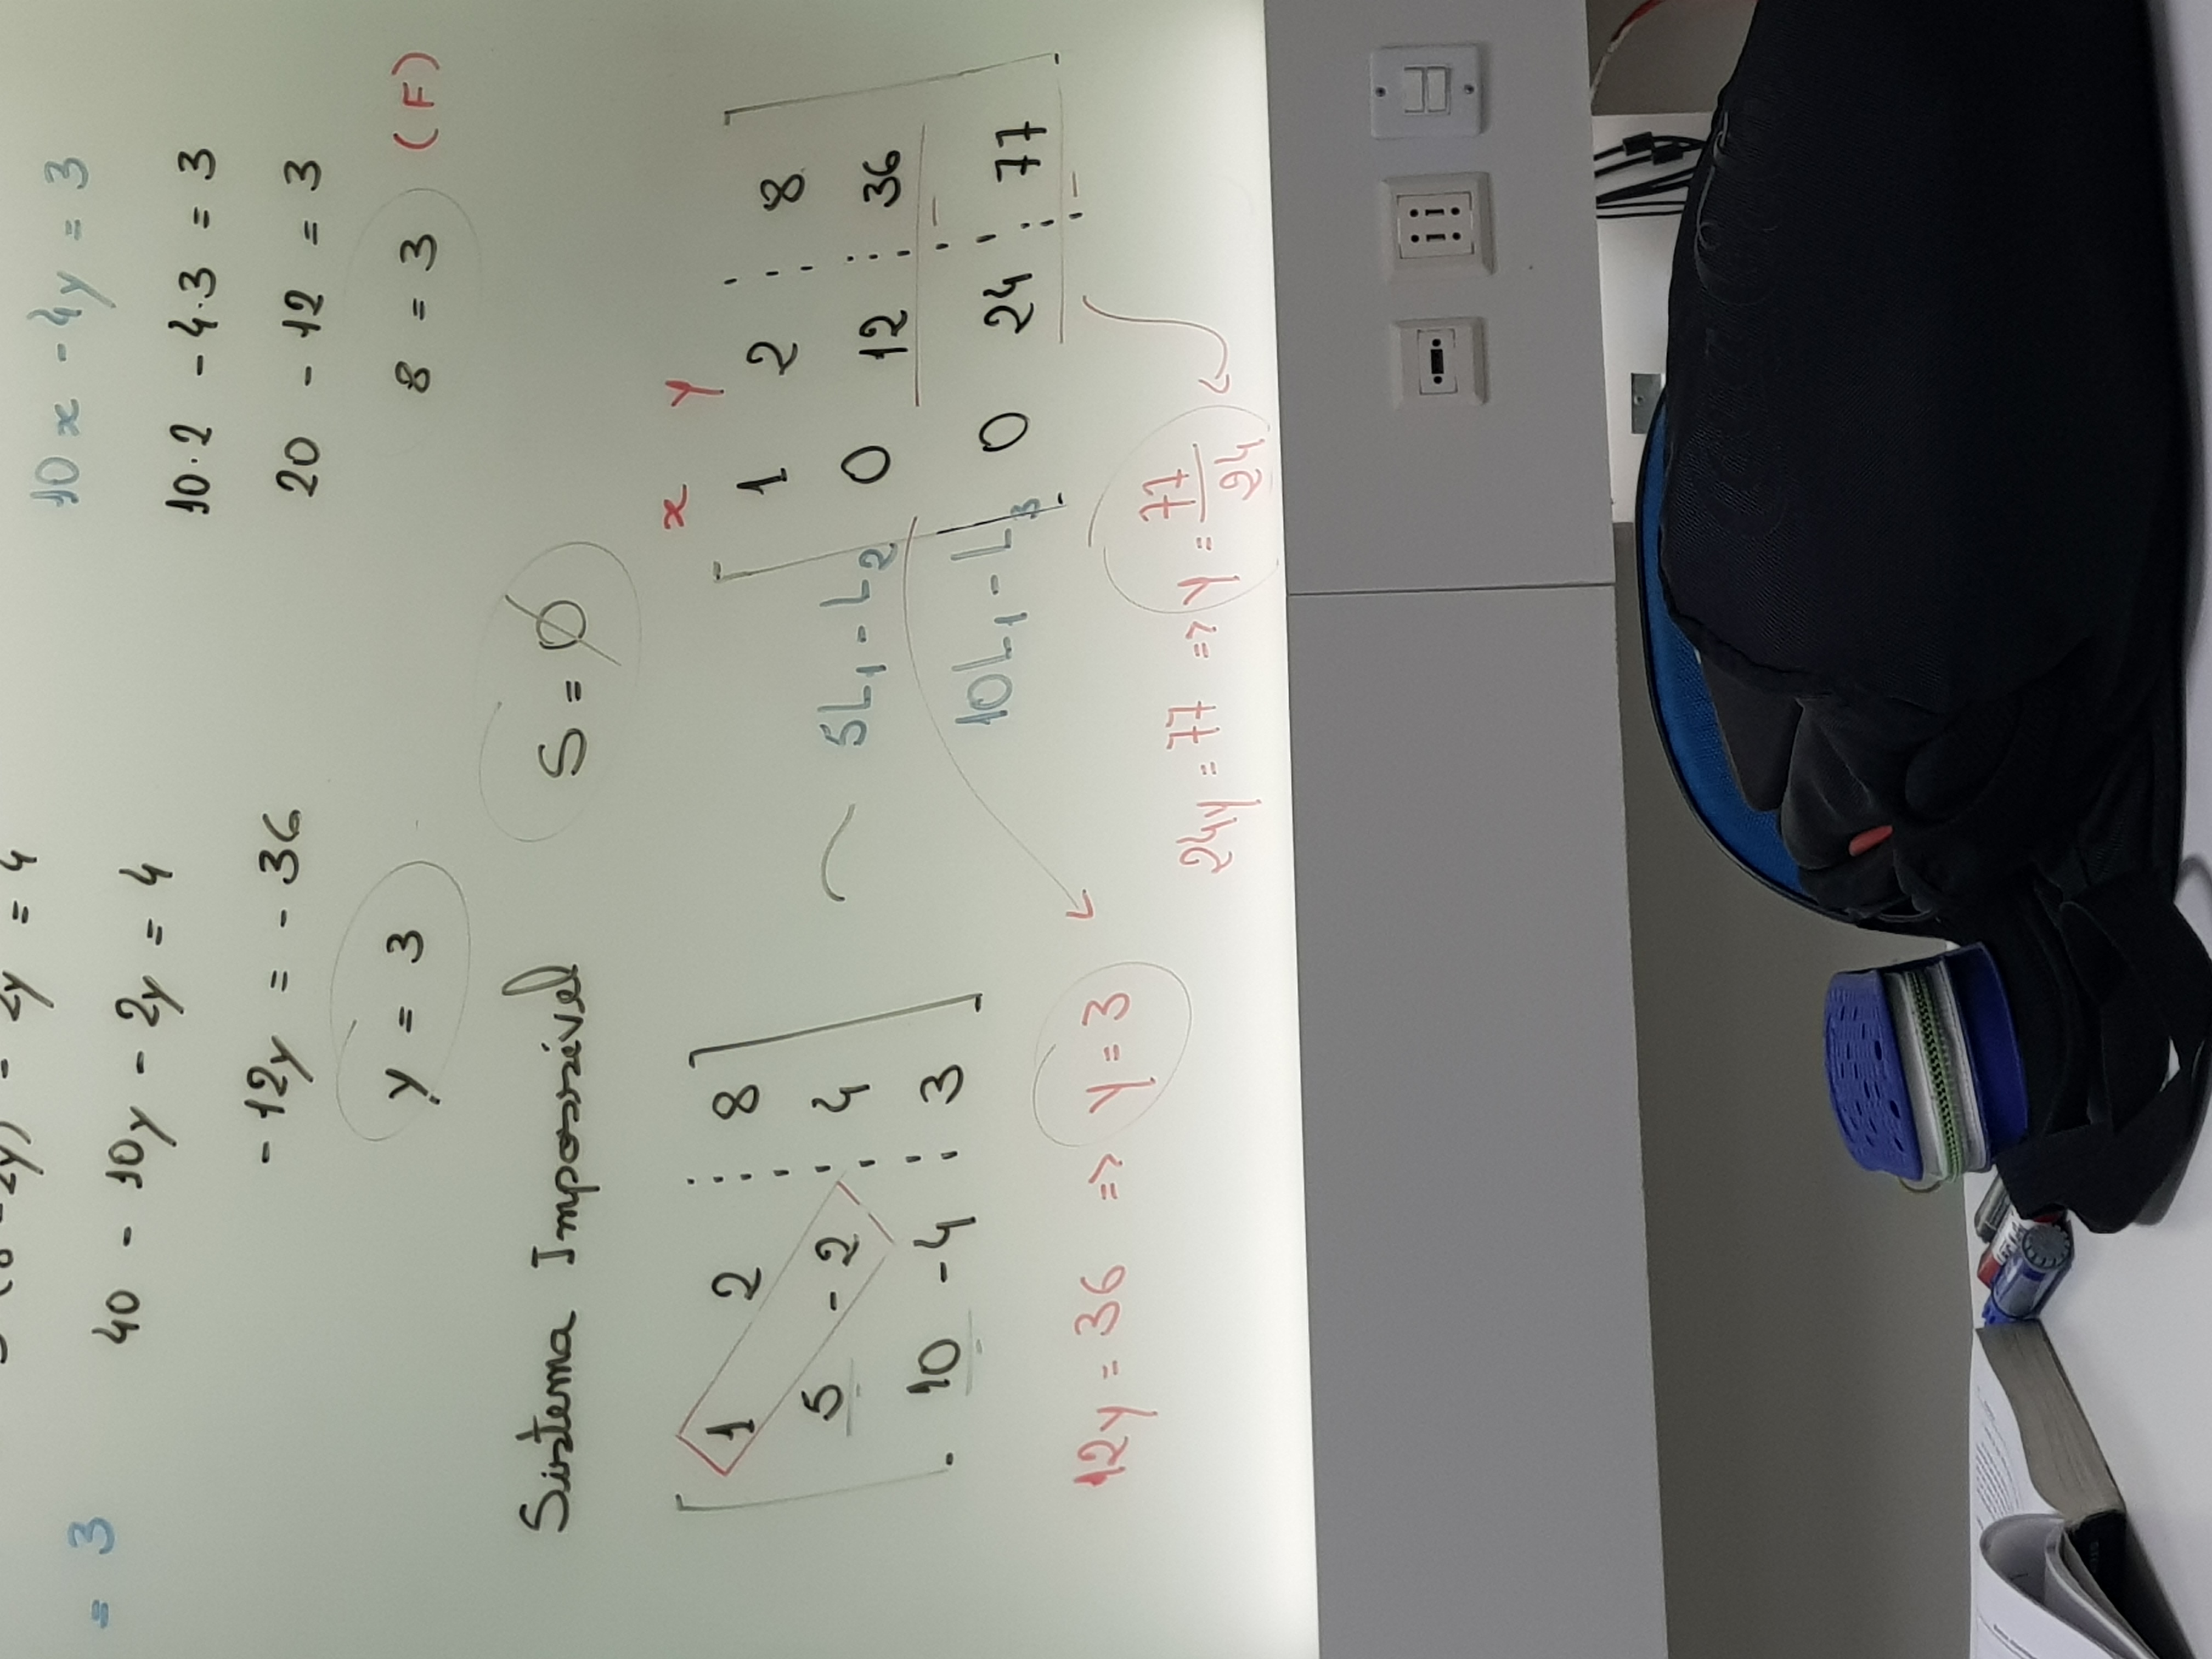 5 (8 - 2y) - 2y = 4
= 3
40 - 10y - 2y = 4
- 12y = - 36
y = 3
10x - 4y = 3
10·2 - 4·3 = 3
20 - 12 = 3
8 = 3 (F)
Sistema Impossível S = ∅
1 2 8
5 - 2 4
10 - 4 3
~
x y
1 2 8
5L₁ - L₂ 0 12 36
10L₁ - L₃ 0 24 77
12y = 36 => y = 3
24y = 77 => y = 77/24
Coca-Cola